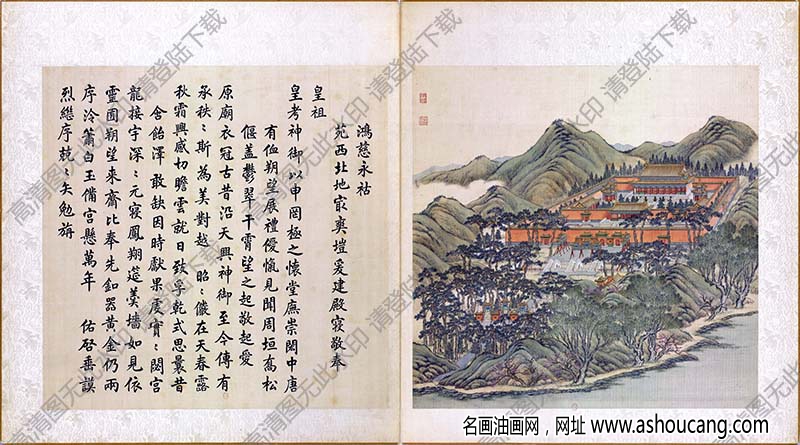 鴻慈永祜
苑西北地㝡爽塏爰建殿寢敬奉
皇祖
皇考神御以申罔極之懷堂廡崇閎中唐
有侐朔望展禮僾愾見聞周垣喬松
偃蓋鬱翠干霄望之起敬起愛
原廟衣冠古昔沿天興神御至今傳有
承秩〻斯為美對越昭〻儼在天春露
秋霜興感切瞻雲就日致孚乾式思曩昔
含飴澤敢缺因時獻果虔實〻閟宮
龍接宇深〻元寢鳳翔筵羹墻如見依
靈囿朔望來齋比奉先釦器黃金仍兩
序泠簫白玉備宮懸萬年 佑啓垂謨
烈繼序兢〻矢勉旃
高清图无此水印 请登陆下载
名画油画网，网址 www.ashoucang.com